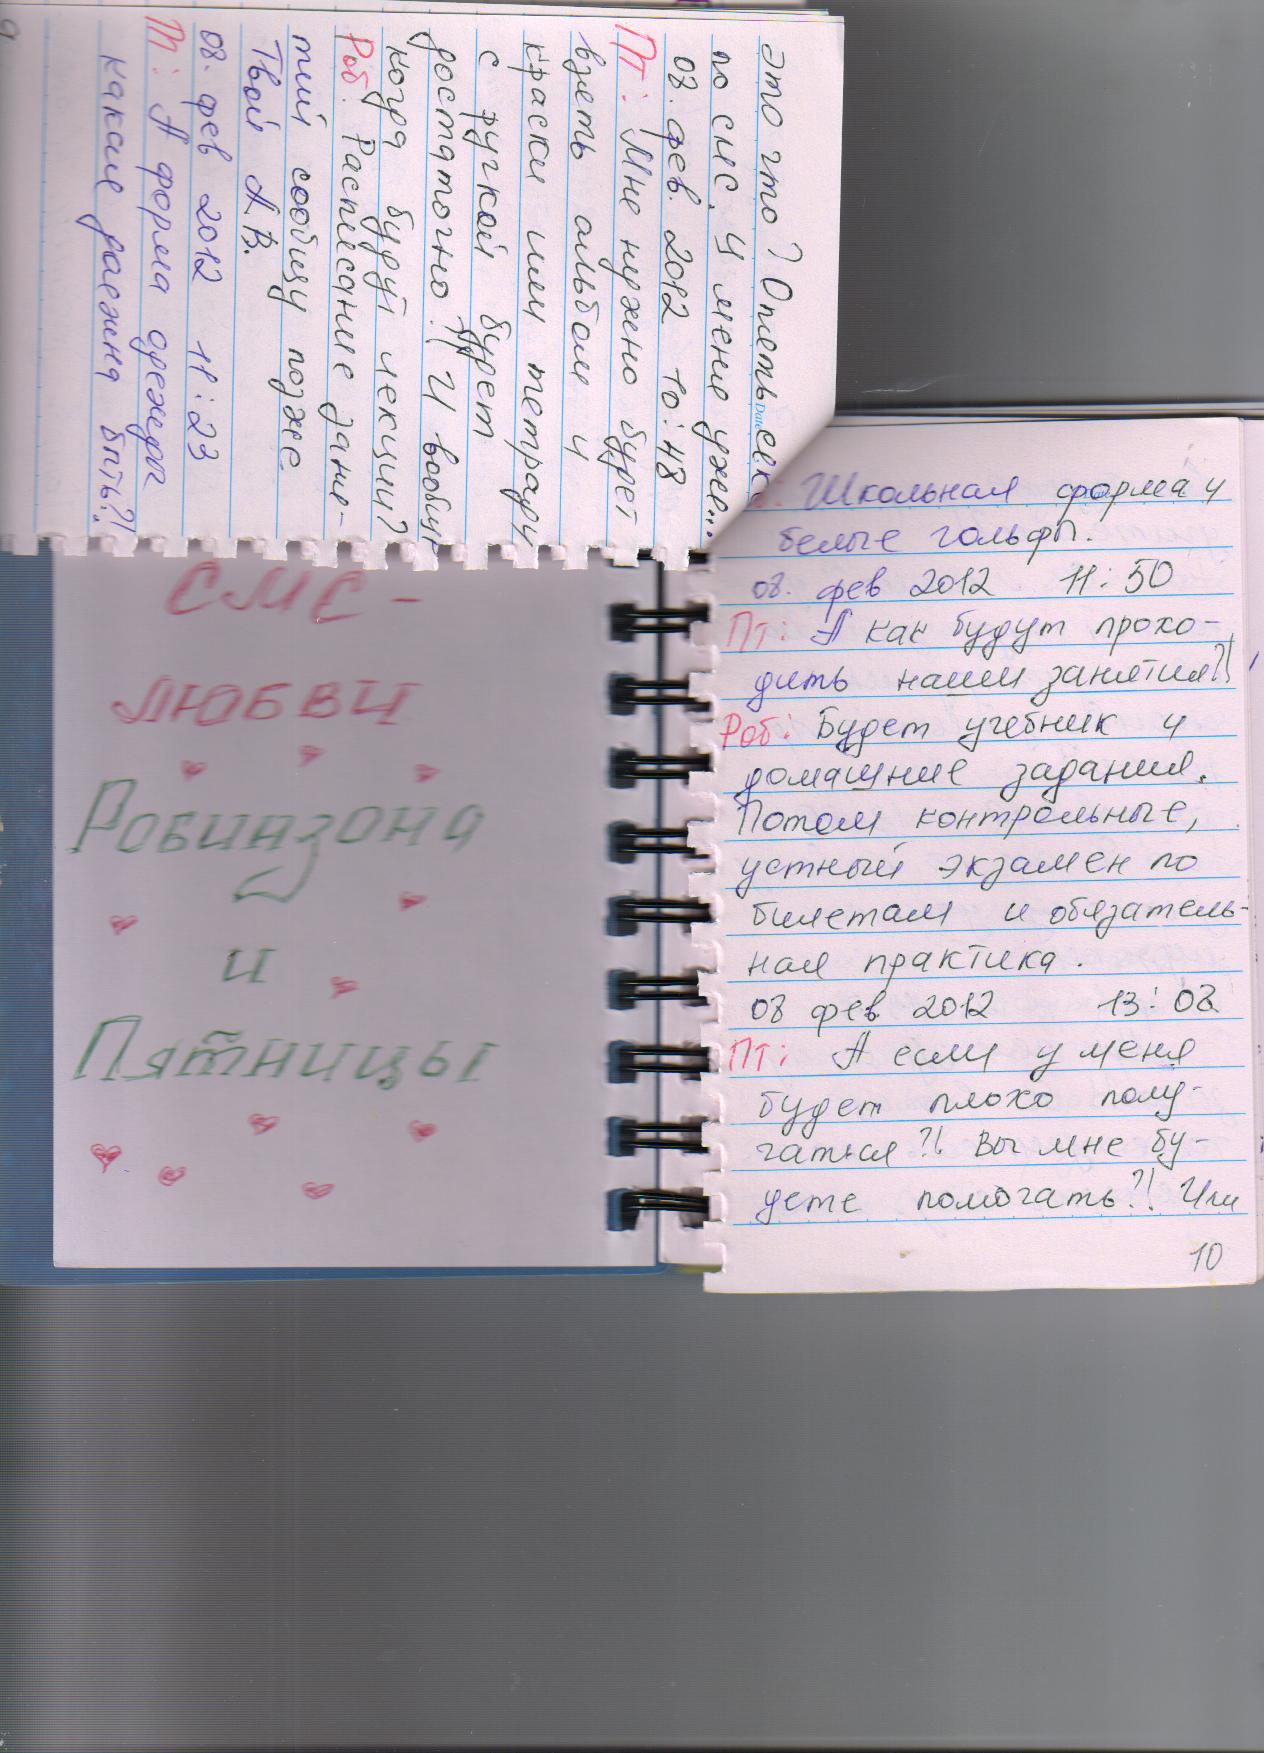 это что? Опять секс
по смс. У меня уже...
08. фев. 2012 10:48
Пт: Мне нужно будет
взять альбом и
краски или тетради
с ручкой будет
достаточно?! И вообще
когда будут лекции?
Роб. Расписание заня-
тий сообщу позже
Твой А.В.
08. фев 2012 11:23
Пт: А форма одежды
какая должна быть?!
9
СМС -
ЛЮБВИ
Робинзона
и
Пятницы
Школьная форма и
белые гольфы.
08. фев 2012 11:50
Пт: А как будут прохо-
дить наши занятия?!
Роб: Будет учебник и
домашние задания.
Потом контрольные,
устный экзамен по
билетам и обязатель-
ная практика.
08 фев 2012 13:08
Пт: А если у меня
будет плохо полу-
чаться?! Вы мне бу-
дете помогать?! Или
10